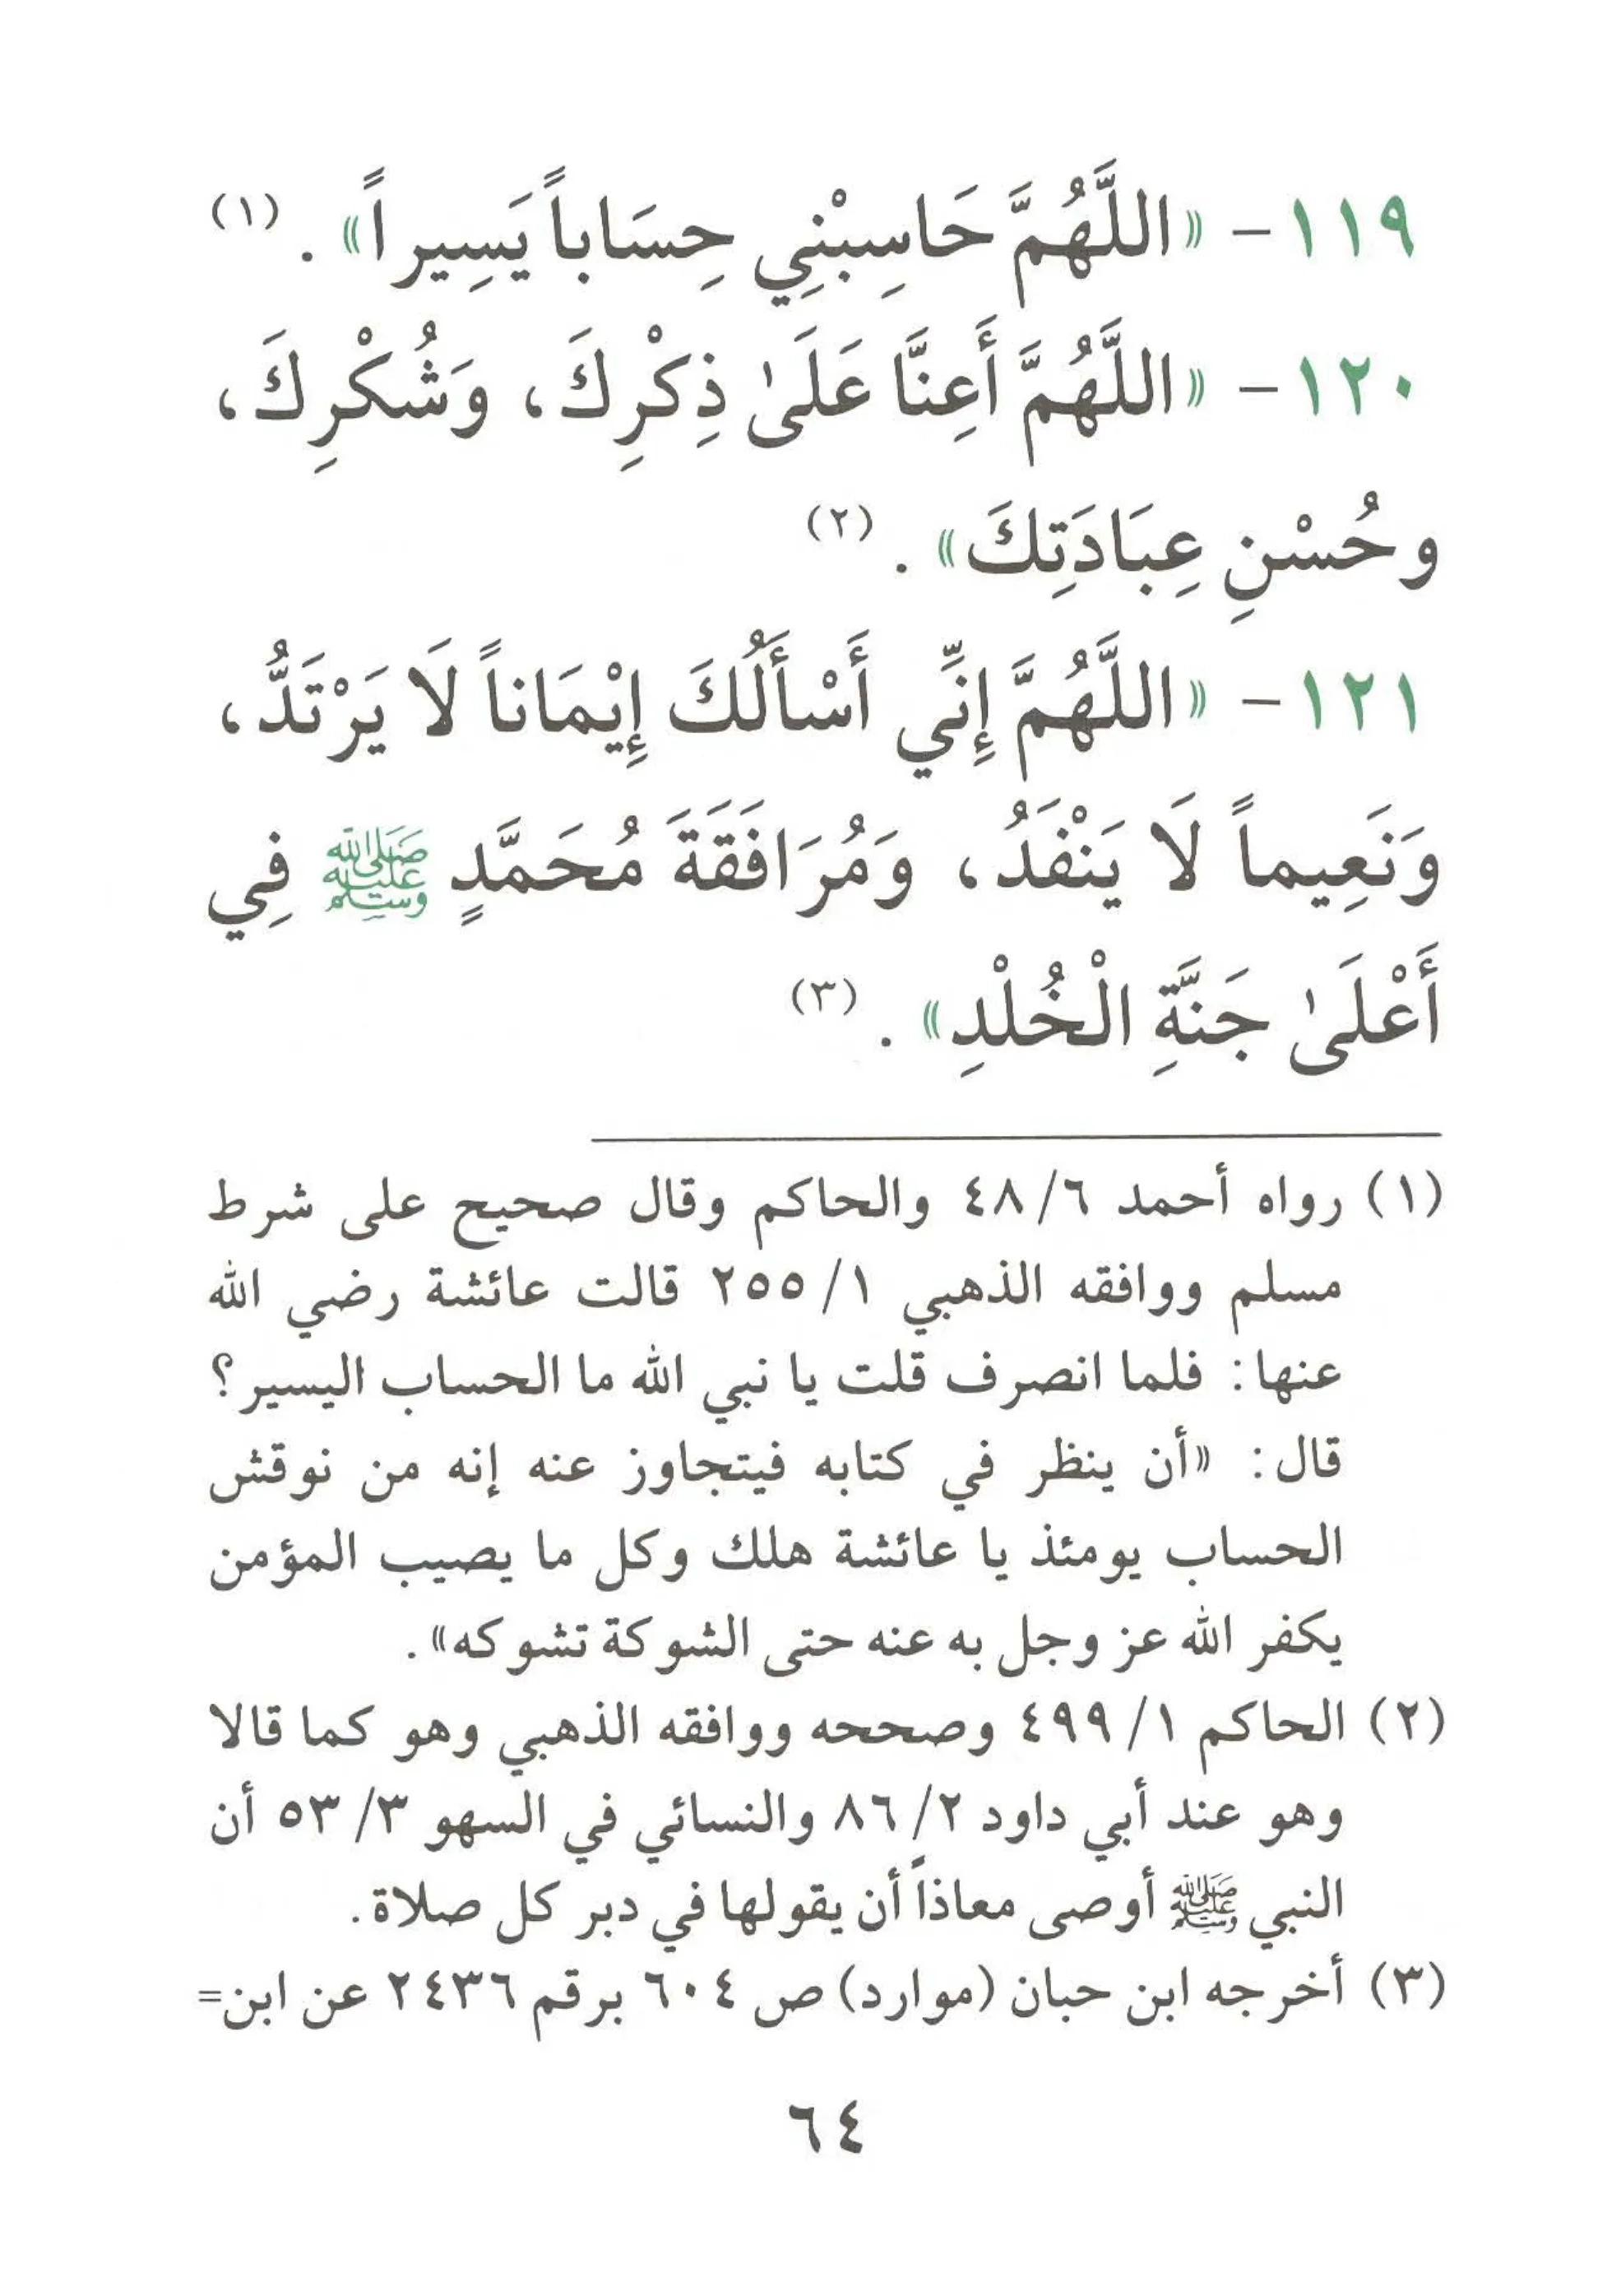 ١١٩- «اللَّهُمَّ حَاسِبْنِي حِسَاباً يَسِيراً» . (١)
١٢٠- «اللَّهُمَّ أَعِنَّا عَلَىٰ ذِكْرِكَ، وَشُكْرِكَ،
وحُسْنِ عِبَادَتِكَ» . (٢)
١٢١- «اللَّهُمَّ إِنِّي أَسْأَلُكَ إِيْمَاناً لَا يَرْتَدُّ،
وَنَعِيماً لَا يَنْفَدُ، وَمُرَافَقَةَ مُحَمَّدٍ ﷺ فِي
أَعْلَىٰ جَنَّةِ الْخُلْدِ» . (٣)
(١) رواه أحمد ٤٨/٦ والحاكم وقال صحيح على شرط
مسلم ووافقه الذهبي ٢٥٥/١ قالت عائشة رضي الله
عنها: فلما انصرف قلت يا نبي الله ما الحساب اليسير؟
قال: «أن ينظر في كتابه فيتجاوز عنه إنه من نوقش
الحساب يومئذ يا عائشة هلك وكل ما يصيب المؤمن
يكفر الله عز وجل به عنه حتى الشوكة تشوكه».
(٢) الحاكم ٤٩٩/١ وصححه ووافقه الذهبي وهو كما قالا
وهو عند أبي داود ٨٦/٢ والنسائي في السهو ٥٣/٣ أن
النبي ﷺ أوصى معاذاً أن يقولها في دبر كل صلاة.
(٣) أخرجه ابن حبان (موارد) ص ٦٠٤ برقم ٢٤٣٦ عن ابن=
٦٤